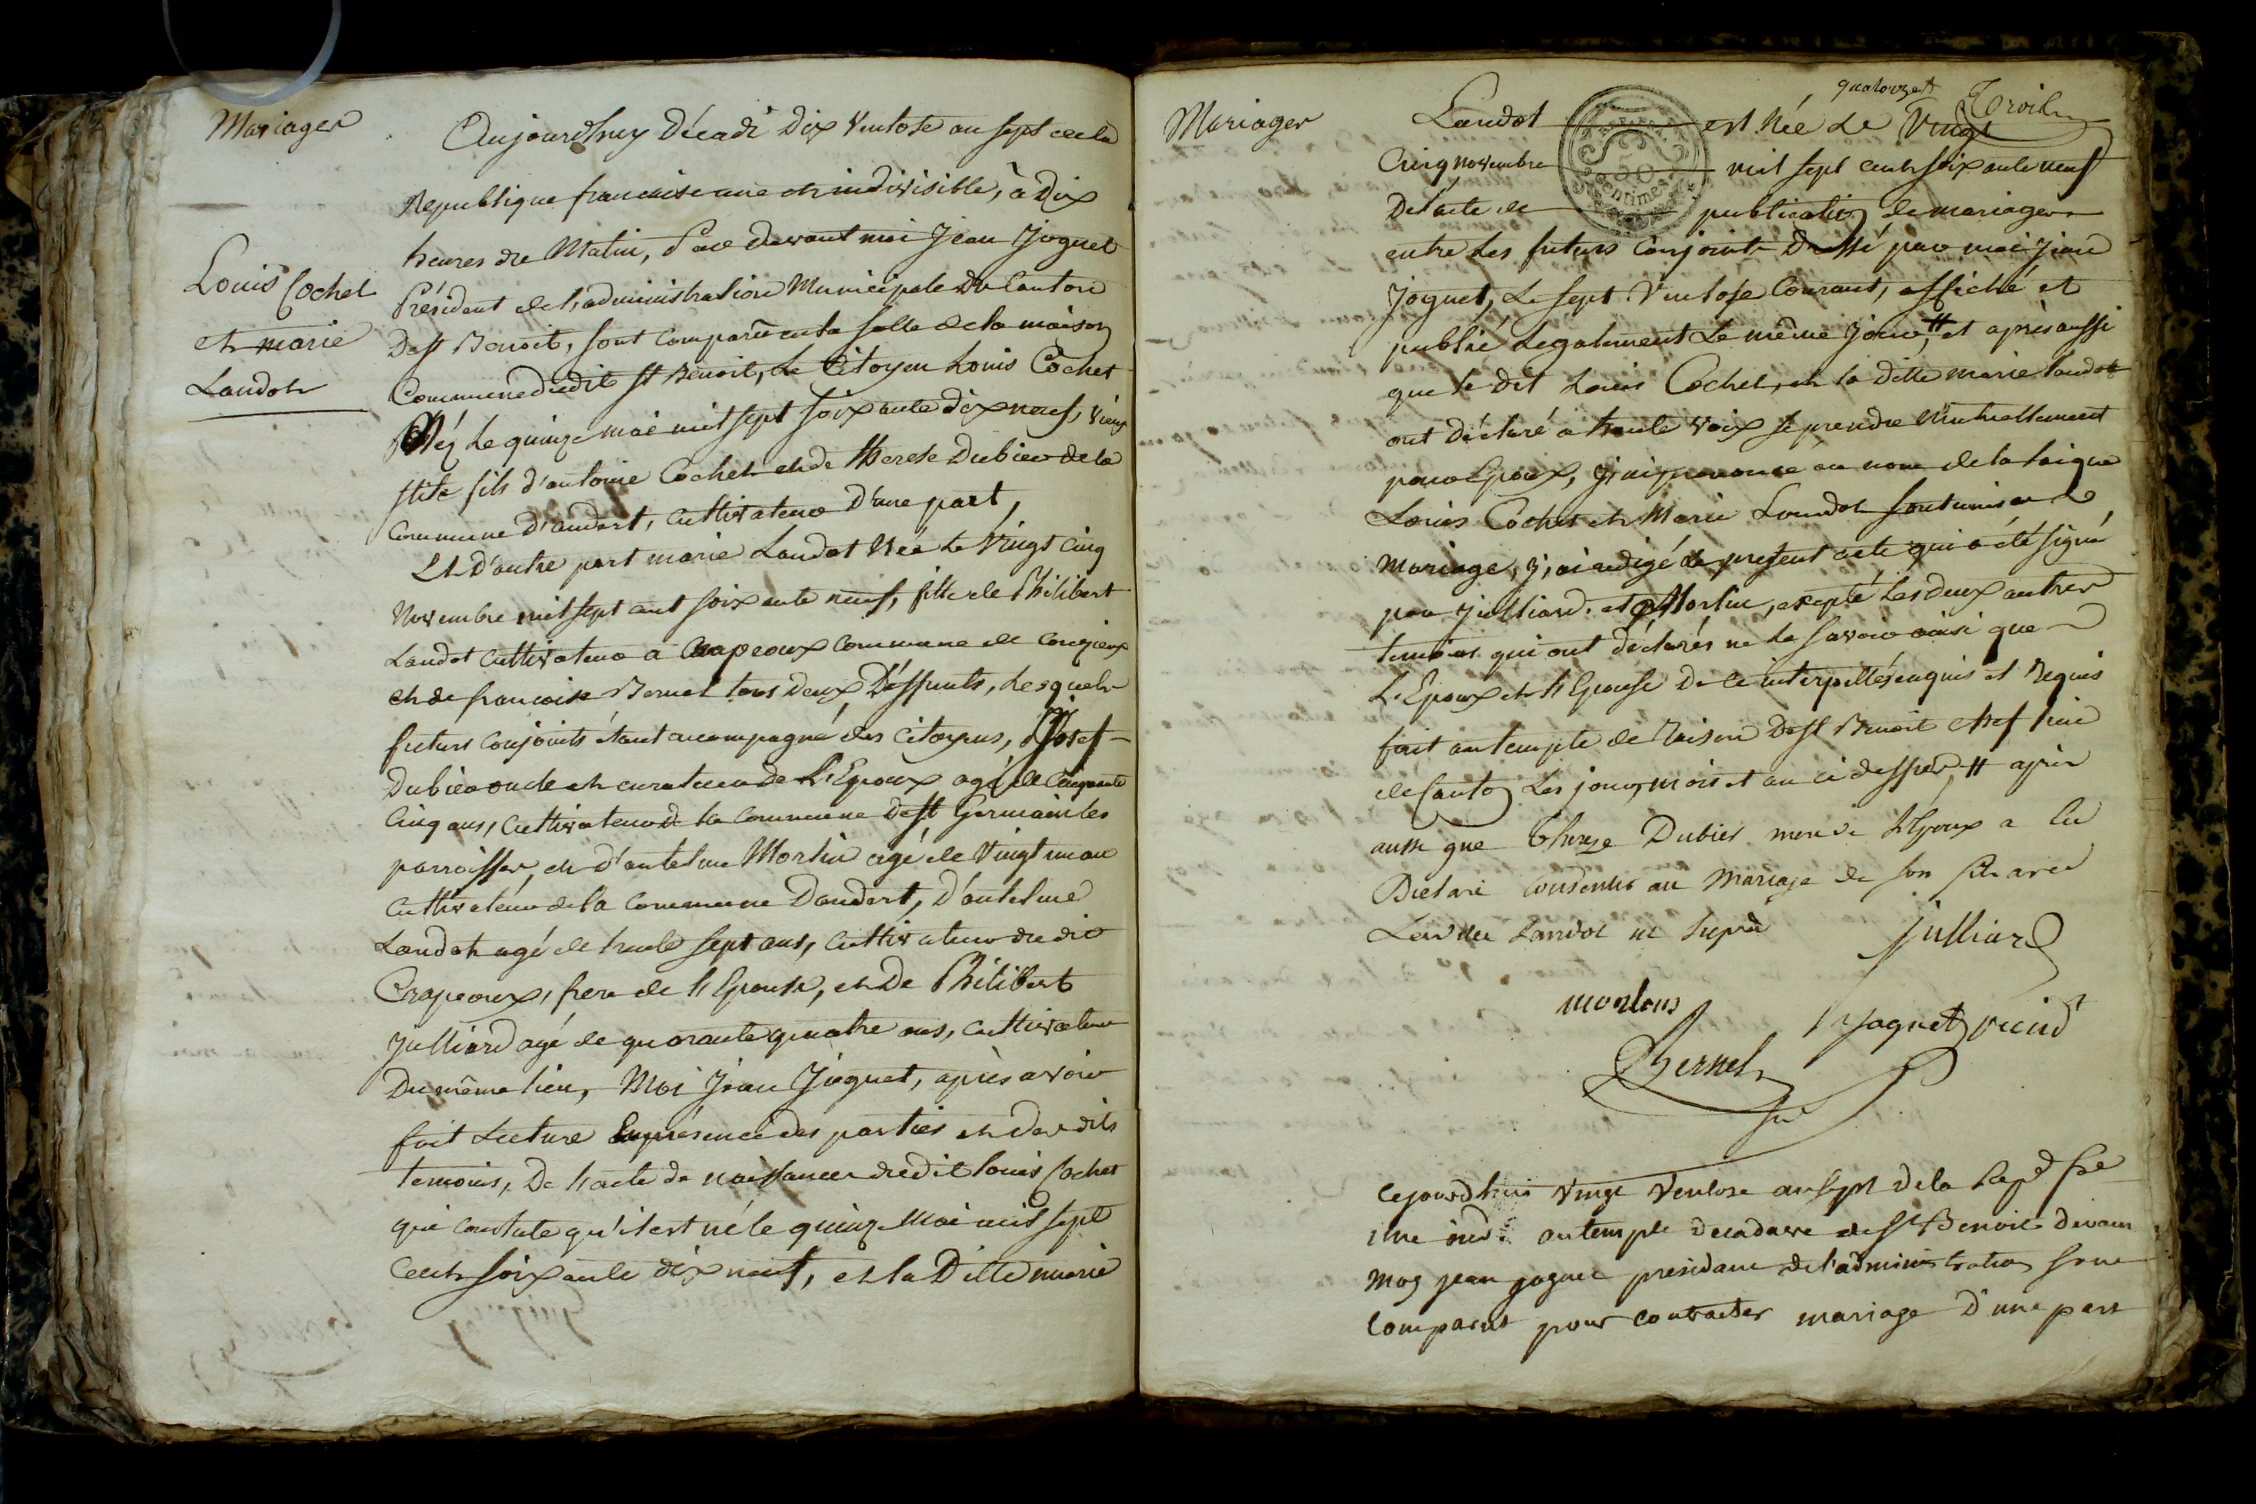 Mariages
Louis Cochet
et marie
Landot
Aujourdhuy Décadi Dix Ventose an sept de la
Republique francaise une et indivisible, à Dix
heures du Matin, Par devant moi Jean Joguet
Président de l'administration Municipale du Canton
De St Benoit, sont comparû en la salle de la maison
Commune dudit St Benoit, le Citoyen Louis Cochet
Néz le quinze mai mil sept soixante dix neuf,
fils d'antoine Cochet et de therese Dubier de la
Commune D'andert, Cultivateur D'une part,
Et D'autre part marie Landot Née le Vingt Cinq
Novembre mil sept cent soixante neuf, fille de Philibert
Landot Cultivateur a Crapeoux Commune de Conzieux
et de francoise Bernet tous Deux Déffunts, Lesquels
futurs Conjoints étant accompagné des Citoyens, Josef
Dubier oncle et curateur de L'Epoux agé de Cinquante
Cinq ans, Cultivateur de la Commune de St Germain les
parroisses, et d'antelme Mortin agé de Vingt un an
Cultivateur de la Commune Dandert, D'antelme
Landot agé de trente sept ans, Cultivateur du dit
Crapeoux, frere de L'Epouse, et De Philibert
Julliard agé de quarante quatre ans, Cultivateur
Du même lieu, Moi Jean Joguet, après avoir
fait Lecture En présence des parties et des dits
temoins, De L'acte de naissance dudit Louis Cochet
qui constate qu'il est né le quinze Mai mil sept
Cent soixante dix neuf, et la Ditte marie
Mariages
quatorze
Landot est Née Le Vingt
Cinq novembre mil sept cent soixante neuf
De L'acte de publication de mariage
entre Les futurs Conjoints Dressé par moi Jean
Joguet, Le sept Ventose Courant, affiché et
publié Legalement Le même jour, # et après aussi
que le dit Louis Cochet, et la Ditte marie landot
ont déclaré a haute Voix se prendre Mutuellement
pour Epoux, j'ai prononcé au nom de la loi que
Louis Cochet et Marie Landot sont unis en
Mariage, j'ai redigé le present acte qui a été signé
par Julliard et Mortin, exepté Les deux autres
temoins qui ont déclarés ne le savoir ainsi que
L'Epoux et L'Epouse De ce interpellés enquis et Requis
fait au temple de Raison De St Benoit chef lieu
de Canton Les jour, mois et an ci dessus, # après
aussi que Therese Dubier mere de L'Epoux a
Declaré consentir au Mariage de son fils avec
Landot ut suprà
Julliard
mortons
Joguet présidt
Bernet
sre
Cejourdhui vingt Ventose an sept de la Repe fse
une indi: au temple decadaire de St Benoit devant
moy jean joguet presidant de l'administration sont
Comparus pour contracter mariage D'une part
50
Centimes